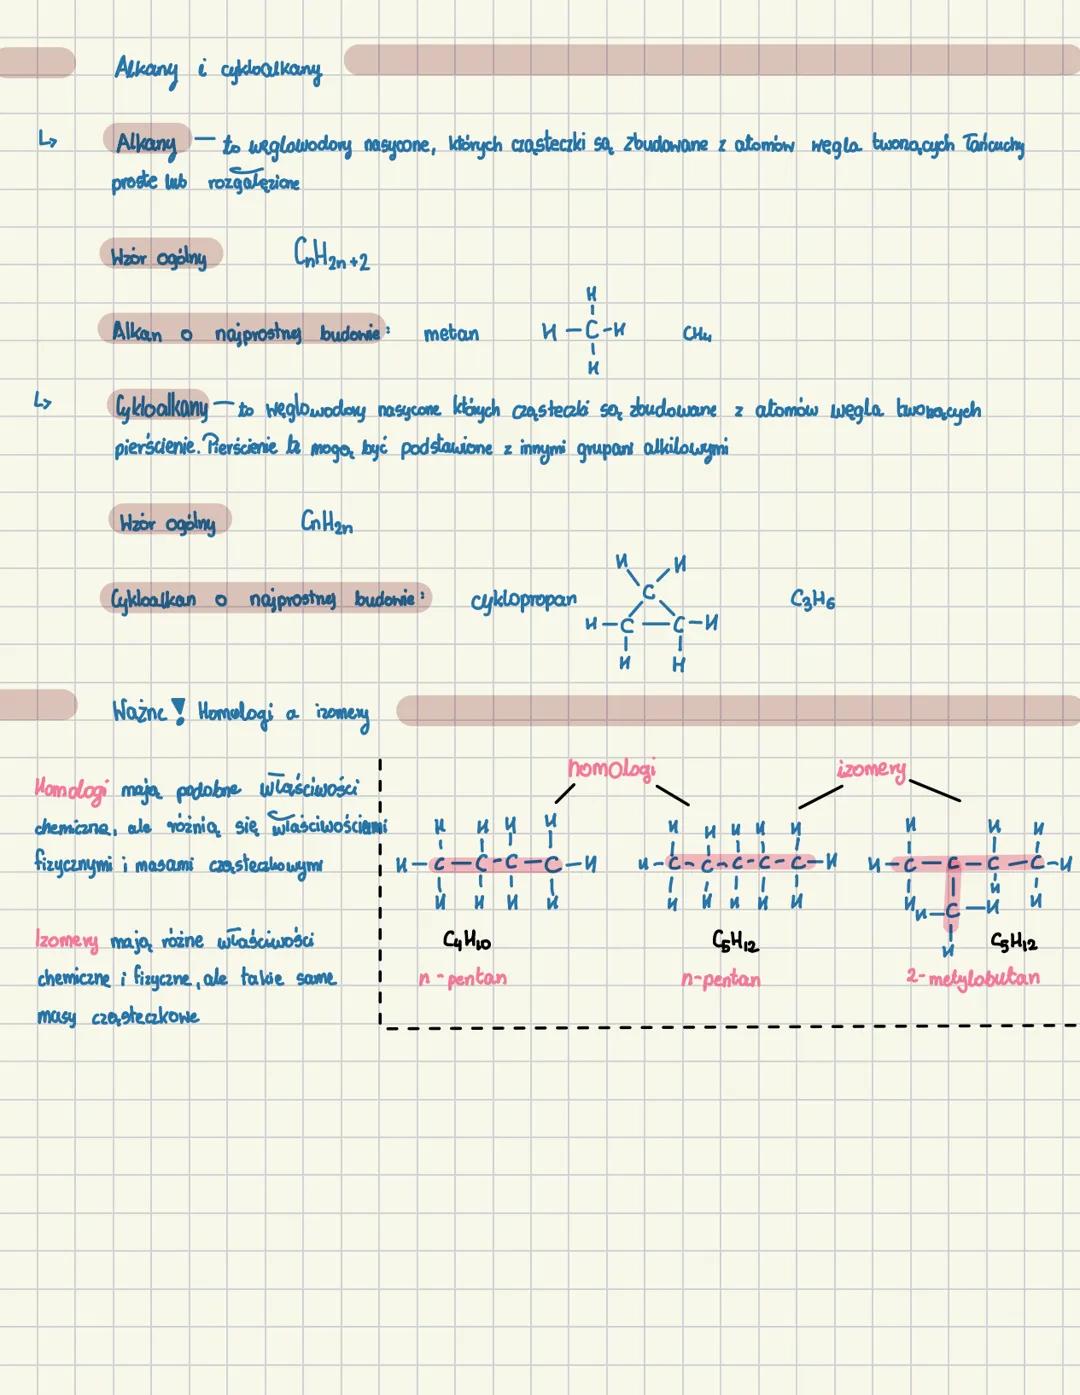 Alkany i cykloalkany
↳ Alkany — to węglowodory nasycone, których cząsteczki są zbudowane z atomów węgla tworzących łańcuchy
proste lub rozgałęzione
Wzór ogólny CnH2n+2
Alkan o najprostrzej budowie: metan CH4
H
H – C – H
H
↳ Cykloalkany — to węglowodory nasycone których cząsteczki są zbudowane z atomów węgla tworzących
pierścienie. Pierścienie te mogą być podstawione z innymi grupami alkilowymi
Wzór ogólny CnH2n
Cykloalkan o najprostrzej budowie: cyklopropan C3H6
H H
C
H – C — C – H
H H
Ważne! Homologi a izomery
Homologi mają podobne właściwości
chemiczne, ale różnią się właściwościami
fizycznymi i masami cząsteczkowymi
Izomery mają różne właściwości
chemiczne i fizyczne, ale takie same
masy cząsteczkowe
homologi izomery
H H H H H H H H H H H H
H – C – C – C – C – H H – C – C – C – C – C – H H – C – C – C – C – H
H H H H H H H H H H H H
H – C – H
H
C4H10 C5H12 C5H12
n-pentan n-pentan 2-metylobutan